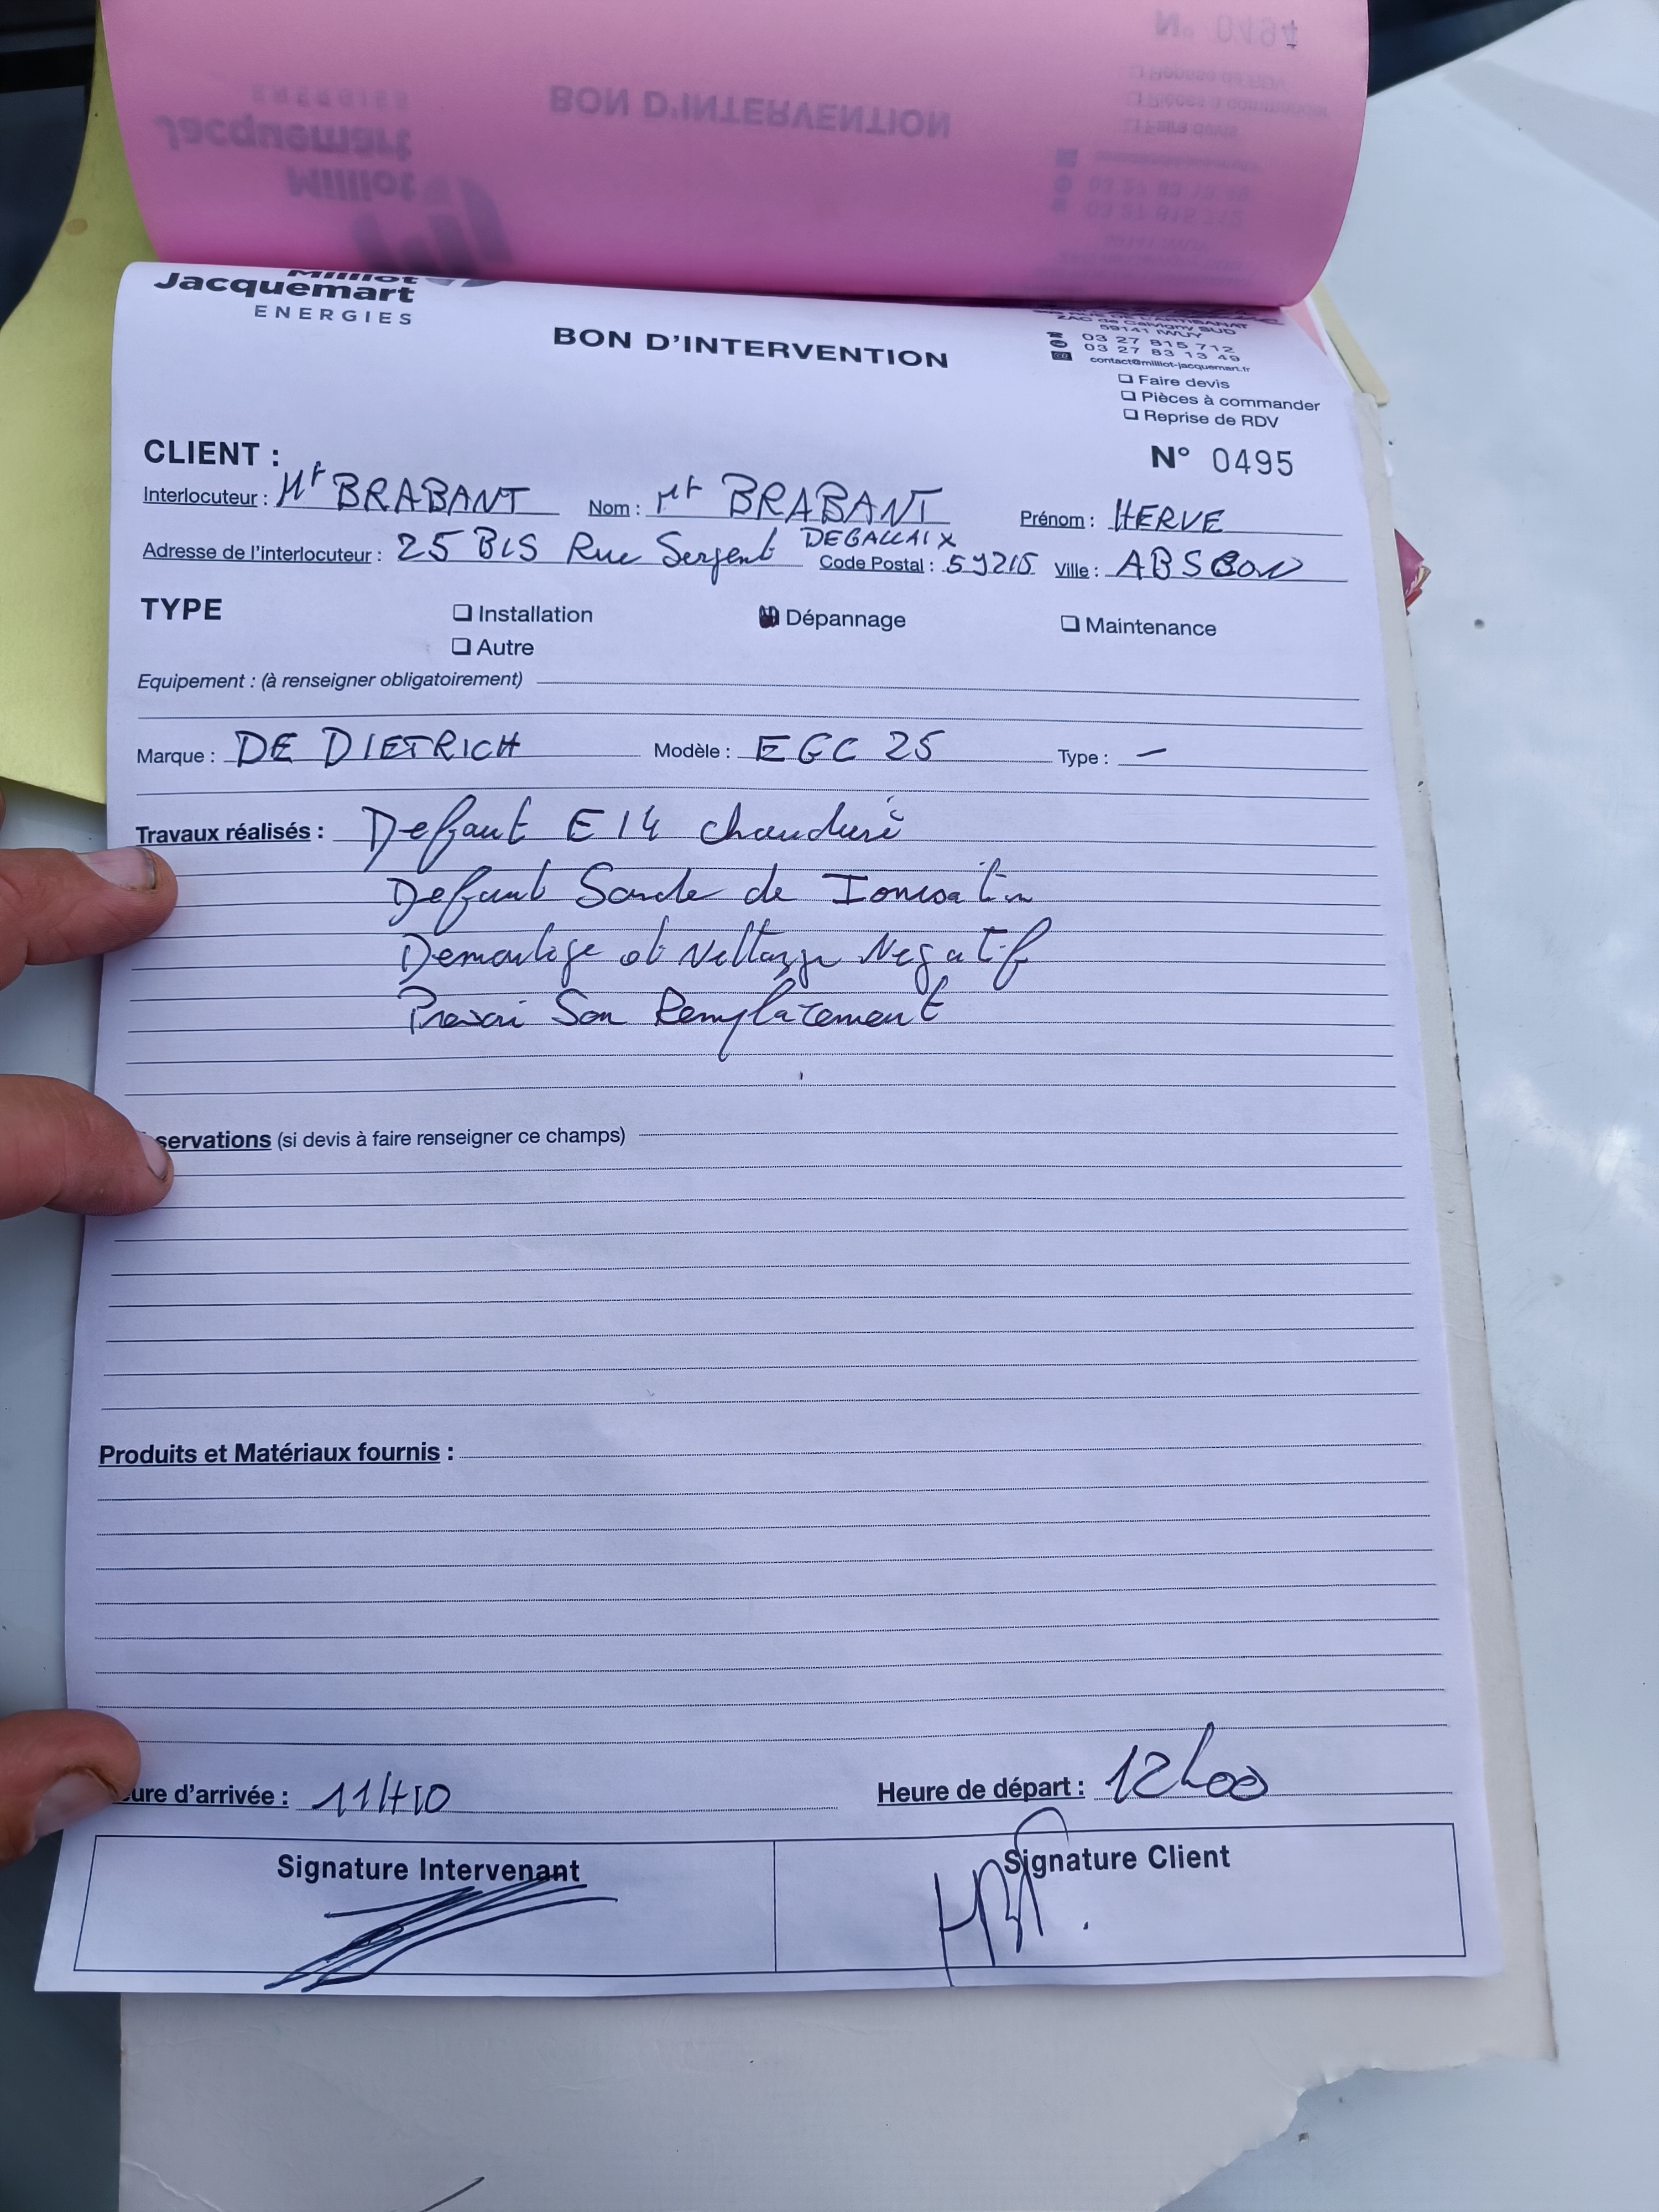 N° 0494
❑ Reprise de RDV
❑ Pièces à commander
❑ Faire devis
BON D'INTERVENTION
ENERGIES
Jacquemart
Milliot
Milliot
Jacquemart
ENERGIES
BON D'INTERVENTION
ZAC de Calvigny SUD
59141 IWUY
03 27 815 712
03 27 83 13 49
contact@milliot-jacquemart.fr
❑ Faire devis
❑ Pièces à commander
❑ Reprise de RDV
N° 0495
CLIENT :
Interlocuteur : Mr BRABANT Nom : Mr BRABANT Prénom : HERVE
Adresse de l'interlocuteur : 25 BIS Rue Sergent DEGALLAIX Code Postal : 59215 Ville : ABSCON
TYPE ❑ Installation Dépannage ❑ Maintenance
❑ Autre
Equipement : (à renseigner obligatoirement)
Marque : DE DIETRICH Modèle : EGC 25 Type : —
Travaux réalisés : Defaut E14 chaudière
Defaut Sonde de Ionisation
Demontage et Nettoyage Negatif
Prevoir Son Remplacement
servations (si devis à faire renseigner ce champs)
Produits et Matériaux fournis :
ure d'arrivée : 11H10 Heure de départ : 12h00
Signature Intervenant Signature Client